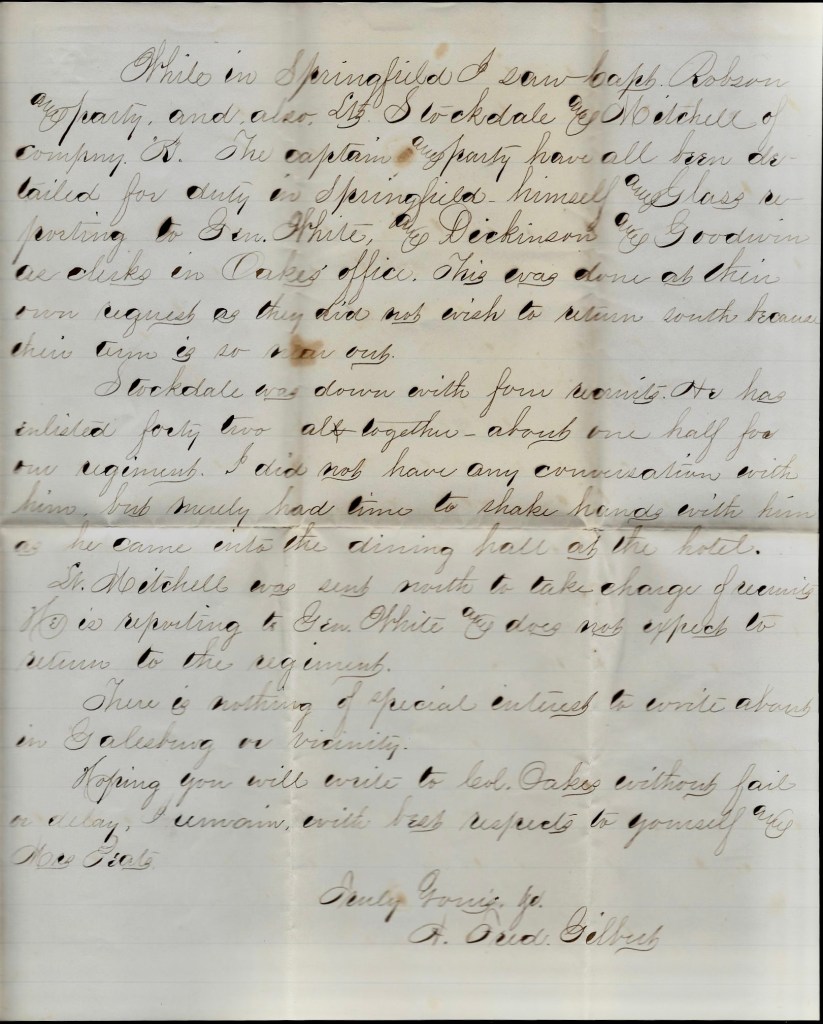 While in Springfield I saw Capt. Robson
and party, and, also, Lts. Stockdale and Mitchell of
company K. The captain and party have all been de-
tailed for duty in Springfield - himself and Glass re-
porting to Gen. White, and Dickinson and Goodwin
as clerks in Oakes' office. This was done at their
own request as they did not wish to return south because
their term is so near out.
Stockdale was down with four recruits. He has
enlisted forty two all together - about one half for
our regiment. I did not have any conversation with
him, but merely had time to shake hands with him
as he came into the dining hall at the hotel.
Lt. Mitchell was sent north to take charge of recruits
He is reporting to Gen. White and does not expect to
return to the regiment.
There is nothing of special interest to write about
in Galesburg or vicinity.
Hoping you will write to Col. Oakes without fail
or delay, I remain, with best respects to yourself and
Mrs
Truly Yours, &c.
Fred. Gilbert